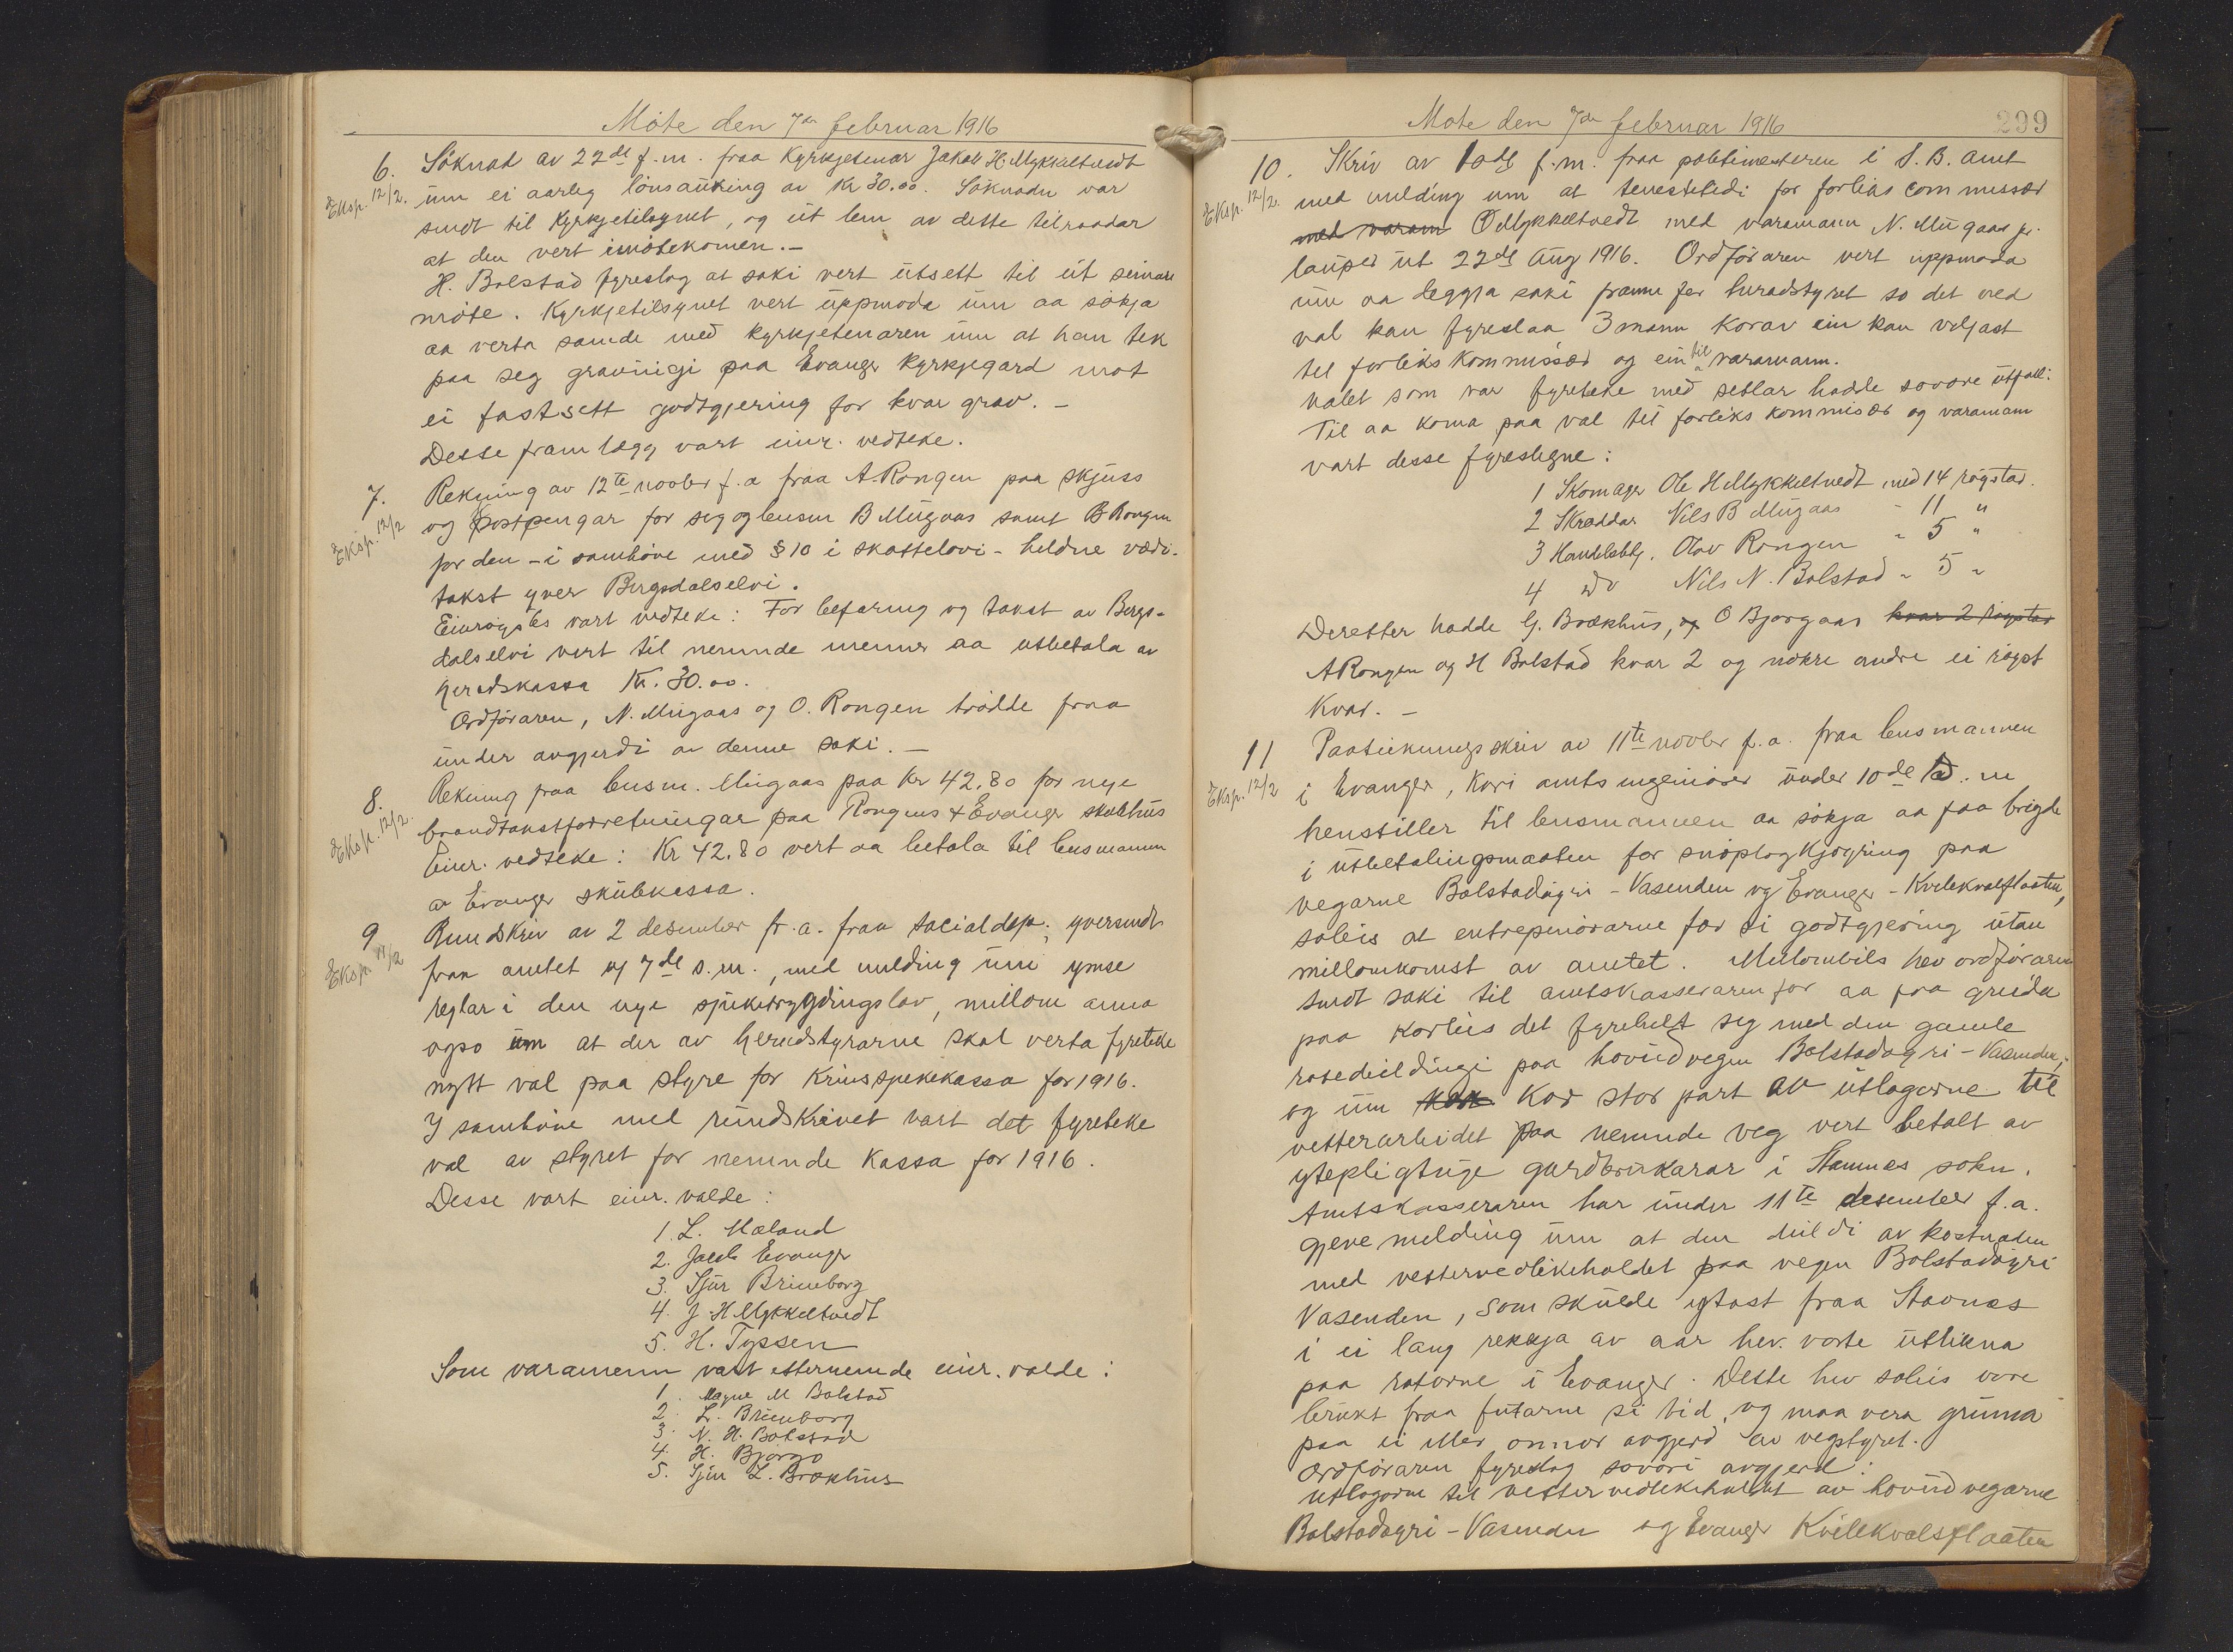 Möte den 7de februar 1916
6. Söknad av 22de f.m. fraa Kyrkjetenar Jakob H. Mykkeltvedt
Eksp. 12/2. um ei aarleg lönsauking av Kr 30.00. Söknadn var
sendt til Kyrkjetilsynet, og eit lem av dette tilraadar
at den vert imötekomen.-
H. Bolstad fyreslog at saki vert utsett til eit seinare
möte. Kyrkjetilsynet vert uppmoda um aa sökja
aa verta samde med kyrkjetenaren um at han tek
paa seg gravingi paa Evanger Kyrkjegard mot
ei fastsett godtgjering for kvar grav. -
Desse framlegg vart einr. vedteke.
7. Rekning av 12te novbr f.a fraa A Rongen paa skjuss
Eksp. 12/2 og postpengar for seg og lensm B Mugaas samt B Rongen
for den - i samhöve med § 10 i skattelovi - heldne verdi-
takst yver Bergsdalselvi.
Einrögstes vart vedteke: For befaring og takst av Bergs-
dalselvi vert til nemnde menner aa utbetala av
heradskassa Kr. 30.00.
Ordföraren, N. Mugaas og O. Rongen trödde fraa
under avgjerdi av denne saki. -
8. Rekning fraa lensm. Mugaas paa Kr 42.80 for nye
Eksp. 12/2. brandtakstforretningar paa Rongens & Evanger skulehus
Einr. vedteke: Kr 42.80 vert aa betala til lensmannen
av Evanger skulekassa.
9 Rundskriv av 2 desember f.a. fraa Socialdep. yversendt
Eksp. 12/2 fraa amtet av 7de s.m., med melding um ymse
reglar i den nye sjuketrygdingslov, millom anna
ogso um at der av heradstyrarne skal verta fyreteke
nytt val paa styre for Krinssjukekassa for 1916.
I samhöve med rundskrivet vart det fyreteke
val av styret for nemnde Kassa for 1916.
Desse vart einr. valde:
1. L. Mæland
2. Jacob Evanger
3. Sjur Brimeborg
4. J. H Mykkeltvedt
5. H. Tyssen
Som varamenn vart etternemnde einr. valde:
1. Magne M Bolstad
2. L. Brimeborg
3. N. H. Bolstad
4. H. Björgo
5. Sjur L. Brækhus
Möte den 7de februar 1916
299
10. Skriv av f.m. fraa politimesteren i S. B. amt
Eksp. 12/2. med melding um at tenestetidi for forlikscommissær
med varam O Mykkeltvedt med varamann N. Mugaas jr.
lauper ut 22de aug 1916. Ordföraren vert uppmoda
um aa leggja saki framm fer heradstyret so det ved
val kan fyreslaa 3 mann Korav ein kan veljast
til forliks Kommissær og ein til varamann.
Valet som var fyreteke med setlar hadde sovore utfall:
Til aa koma paa val til forliks kommisær og varamann
vart desse fyreslegne:
1 Skomager Ole H Mykkeltvedt med 14 rögstar.
2 Skreddar Nils B Mugaas " 11 "
3 Handelsbtj. Olav Rongen " 5 "
4 do Nils N. Bolstad " 5 "
Deretter hadde G. Brækhus, og O Bjorgaas kvar 2 rögstar
A Rongen og H Bolstad kvar 2 og nokre andre ei rögst
Kvar. -
11 Paateikningsskriv av 11te novbr f.a. fraa lensmannen
Eksp. 12/2 i Evanger, Kori amtsingeniören under 10de s. m
henstiller til lensmannen aa sökja aa faa brigde
i utbetalingsmaaten for snöplogkjöyring paa
vegarne Bolstadöyri - Vasenden og Evanger - Kvilekvalsflaaten,
soleis at entrepenörarne for si godtgjering utan
millomkomst av amtet. Mulombils hev ordföraren
sendt saki til amtskasseraren for aa faa greida
paa korleis det fyreheld seg med den gamle
rodedeildingi paa hovudvegen Bolstadöyri - Vasenden,
og um kor Kor stor part av utlogorne til
vetterarbeidet paa nemnde veg vert betalt av
ytepligtige gardbrukarar i Stamnes sokn.
Amtskasseraren har under 11te desember f.a.
gjeve melding um at den deildi av kostnaden
med vettervedlikeholdet paa vegen Bolstadöyri
Vasenden, som skulde ytast fraa Stavnes
i ei lang rekkja av aar hev. vorte utlikna
paa rotorne i Evanger. Dette hev soleis vore
brukt fraa futarne si tid, og maa vera gruna
paa ei eller onnor avgjerd av vegstyret.
Ordföraren fyreslog sovori avgjerd:
Utlogorne til vettervedlikeholdet av hovudvegarne
Bolstadöyri - Vasenden og Evanger Kvilekvalsflaaten